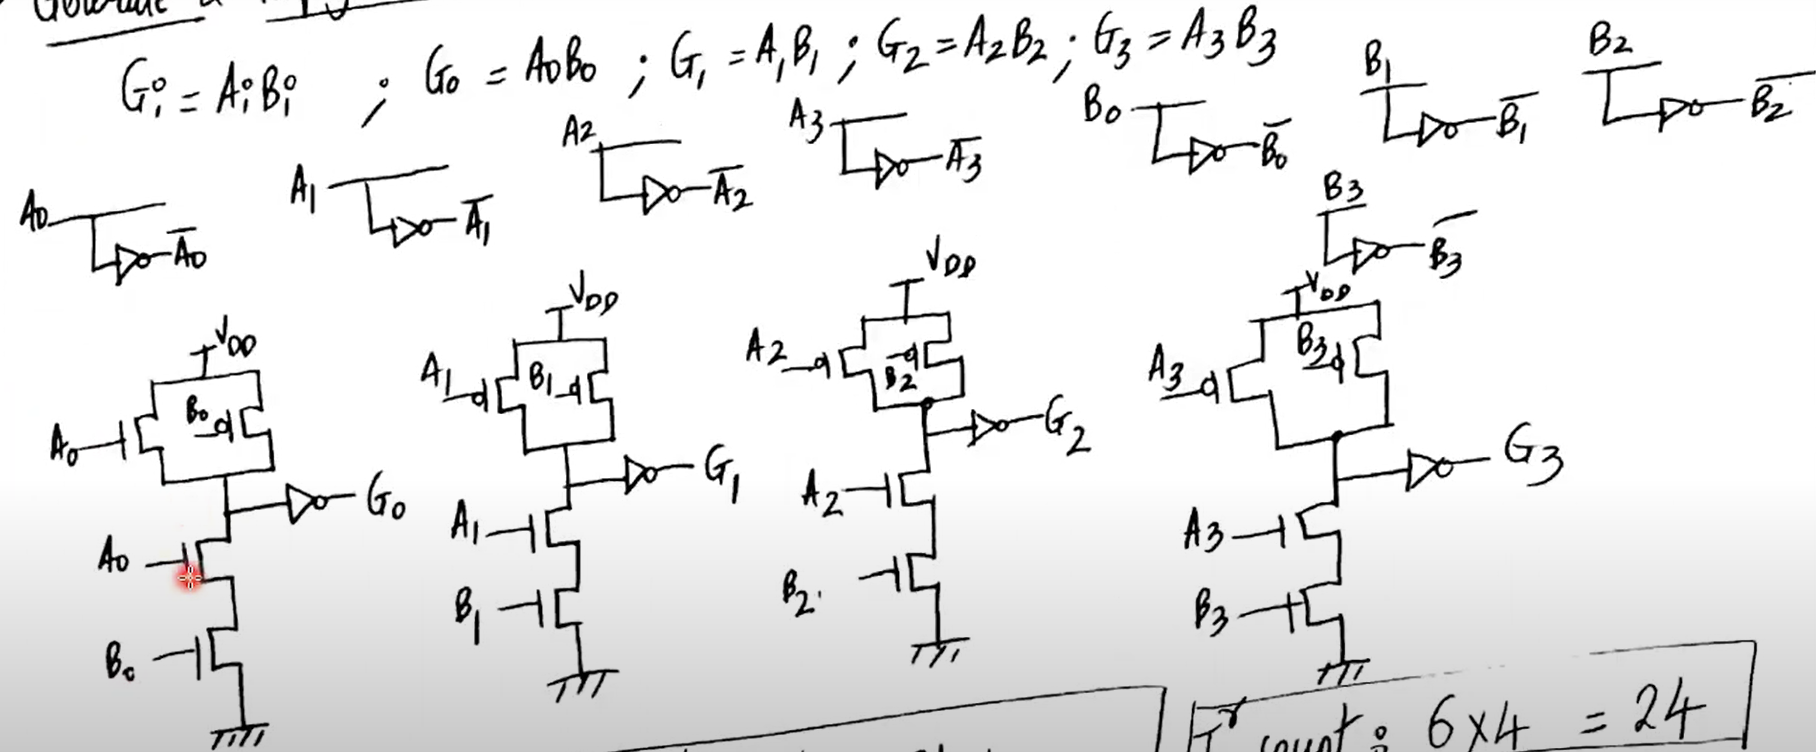 Generate a
Gi = AiBi ; G0 = A0B0 ; G1 = A1B1 ; G2 = A2B2 ; G3 = A3B3
A0 A̅0
A1 A̅1
A2 A̅2
A3 A̅3
B0 B̅0
B1 B̅1
B2 B̅2
B3 B̅3
VDD
A0 B0
G0
A0
B0
VDD
A1 B1
G1
A1
B1
VDD
A2 B2
G2
A2
B2.
VDD
A3 B3
G3
A3
B3
Tr count : 6×4 = 24